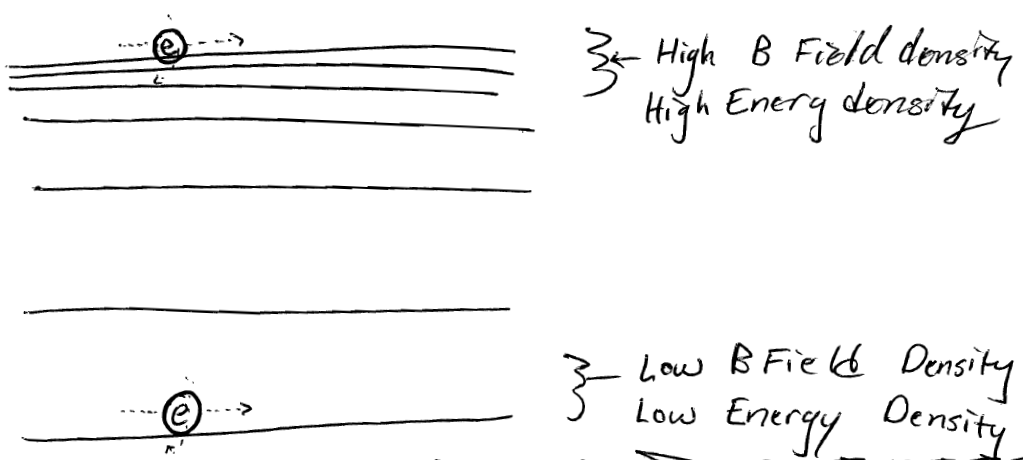 e
High B Field density
High Enery density
e
Low B Field Density
Low Energy Density